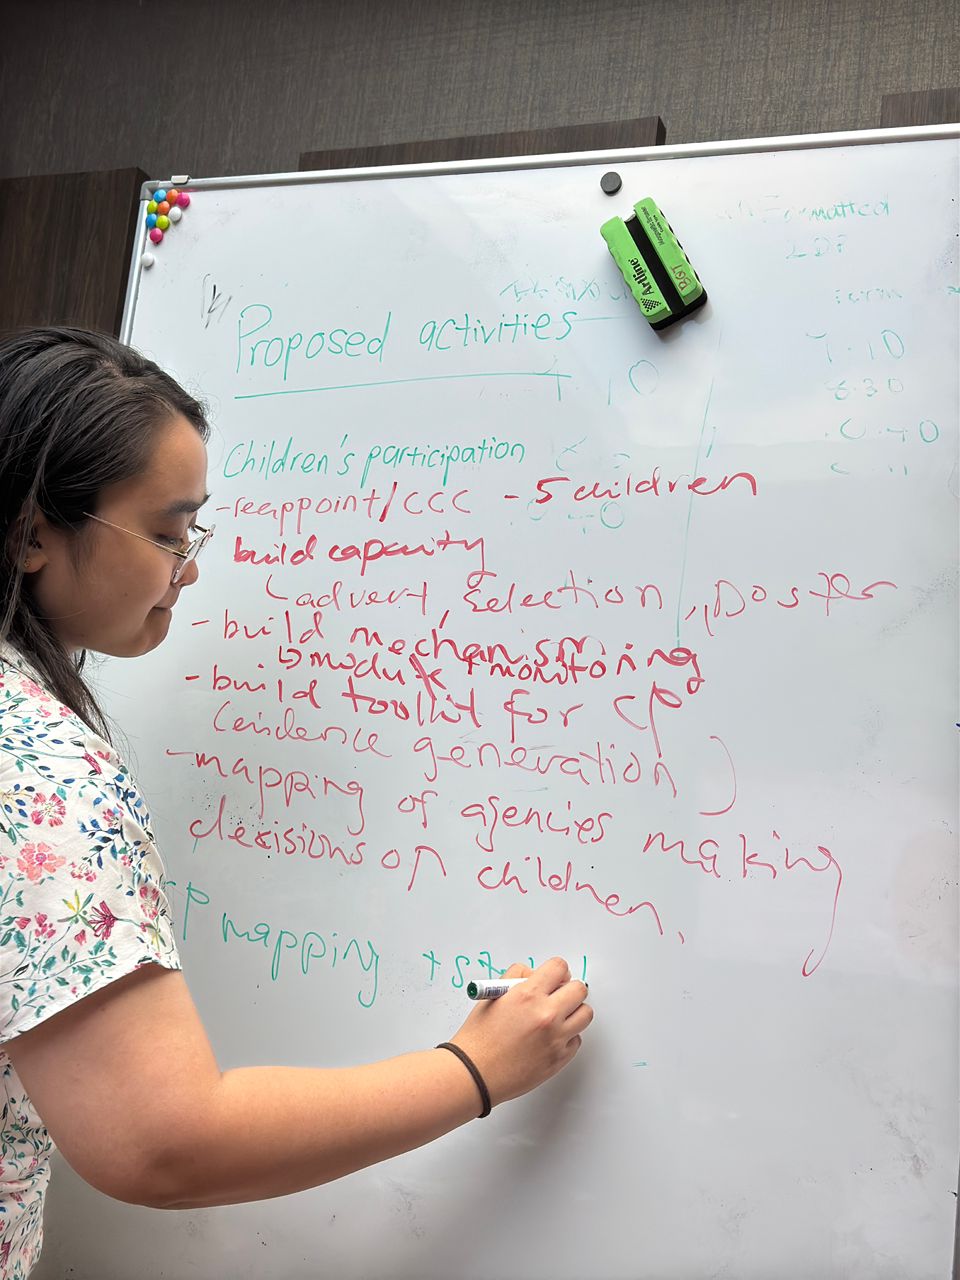 unformatted
Artline
BGT
7.10
6.30
Proposed activities
Children's participation
-reappoint/CCC - 5 children
build capacity
advert, selection, poster
- build mechanism
module + monitoring
- build toolkit for CP
(evidence generation)
-mapping of agencies making
decisions on children.
CP mapping +